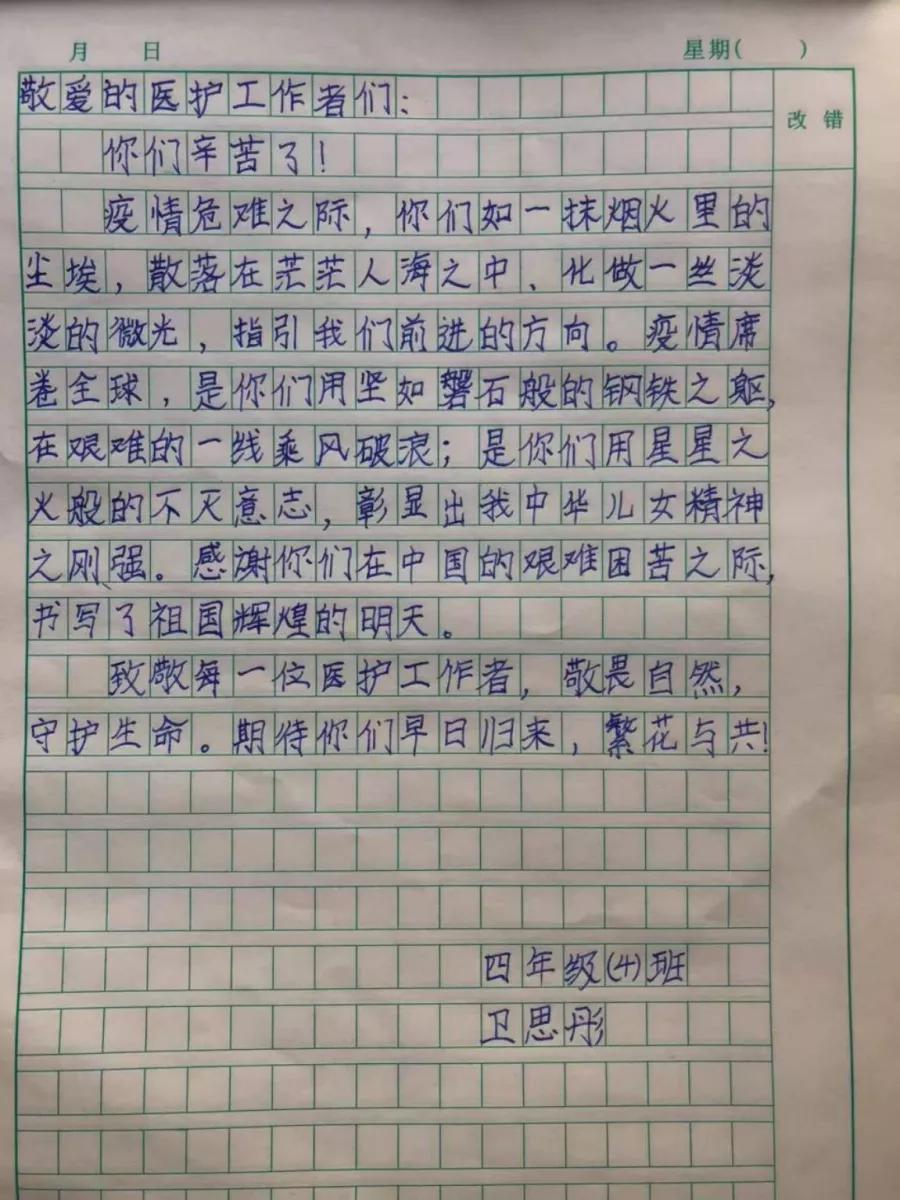 月 日 星期( )
改错
敬爱的医护工作者们:
你们辛苦了!
疫情危难之际,你们如一抹烟火里的
尘埃,散落在茫茫人海之中、化做一丝淡
淡的微光,指引我们前进的方向。疫情席
卷全球,是你们用坚如磐石般的钢铁之躯,
在艰难的一线乘风破浪;是你们用星星之
火般的不灭意志,彰显出我中华儿女精神
之刚强。感谢你们在中国的艰难困苦之际,
书写了祖国辉煌的明天。
致敬每一位医护工作者,敬畏自然,
守护生命。期待你们早日归来,繁花与共!
四年级(4)班
卫思彤